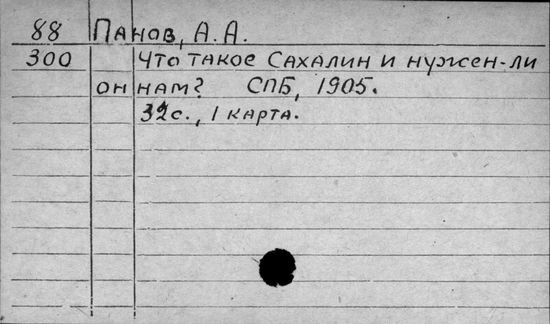 88 Панов, А.А.
300 Что такое Сахалин и нужен-ли
он нам? СПБ, 1905.
32с., 1 карта.